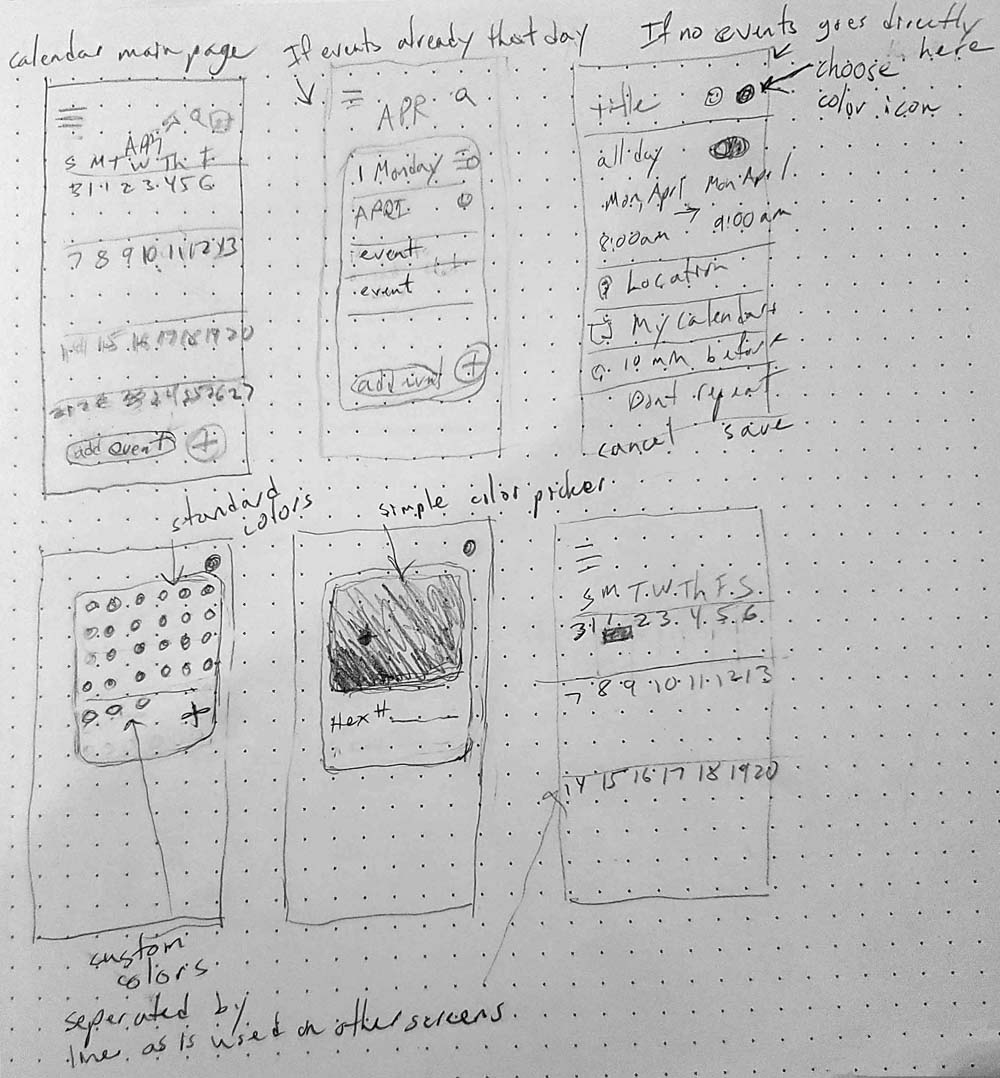 calendar main page
If events already that day
If no events goes directly
here
choose
color icon
APR
S M T W Th F
31 1 2 3 4 5 6
7 8 9 10 11 12 13
15 16 17 18 19 20
24 25 26 27
add event +
APR
1 Monday
APR 1
event
event
add event +
title
all day
Mon, April Mon April
8:00am → 9:00am
Location
My calendar
10 min before
Dont repeat
cancel save
standard
colors
+
custom
colors
simple color picker
Hex #
S M T W Th F S
31 1 2 3 4 5 6
7 8 9 10 11 12 13
14 15 16 17 18 19 20
seperated by
line as is used on other screens